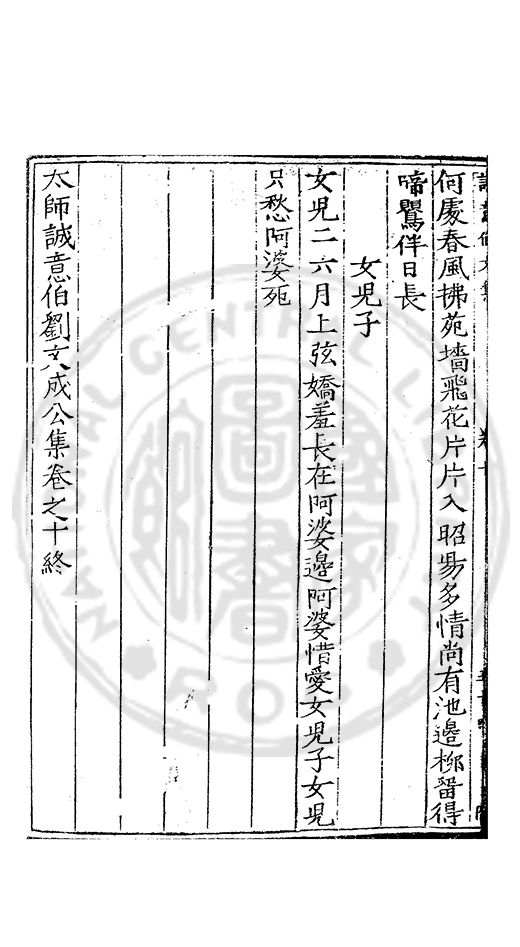 何處春風拂苑墻飛花片片入昭陽多情尚有池邊柳畱得
啼鶯伴日長
女児子
女児二六月上弦嬌羞長在阿婆邊阿婆惜愛女児子女児
只愁阿婆死
太師誠意伯劉文成公集卷之十終
NATIONAL CENTRAL
R.O.